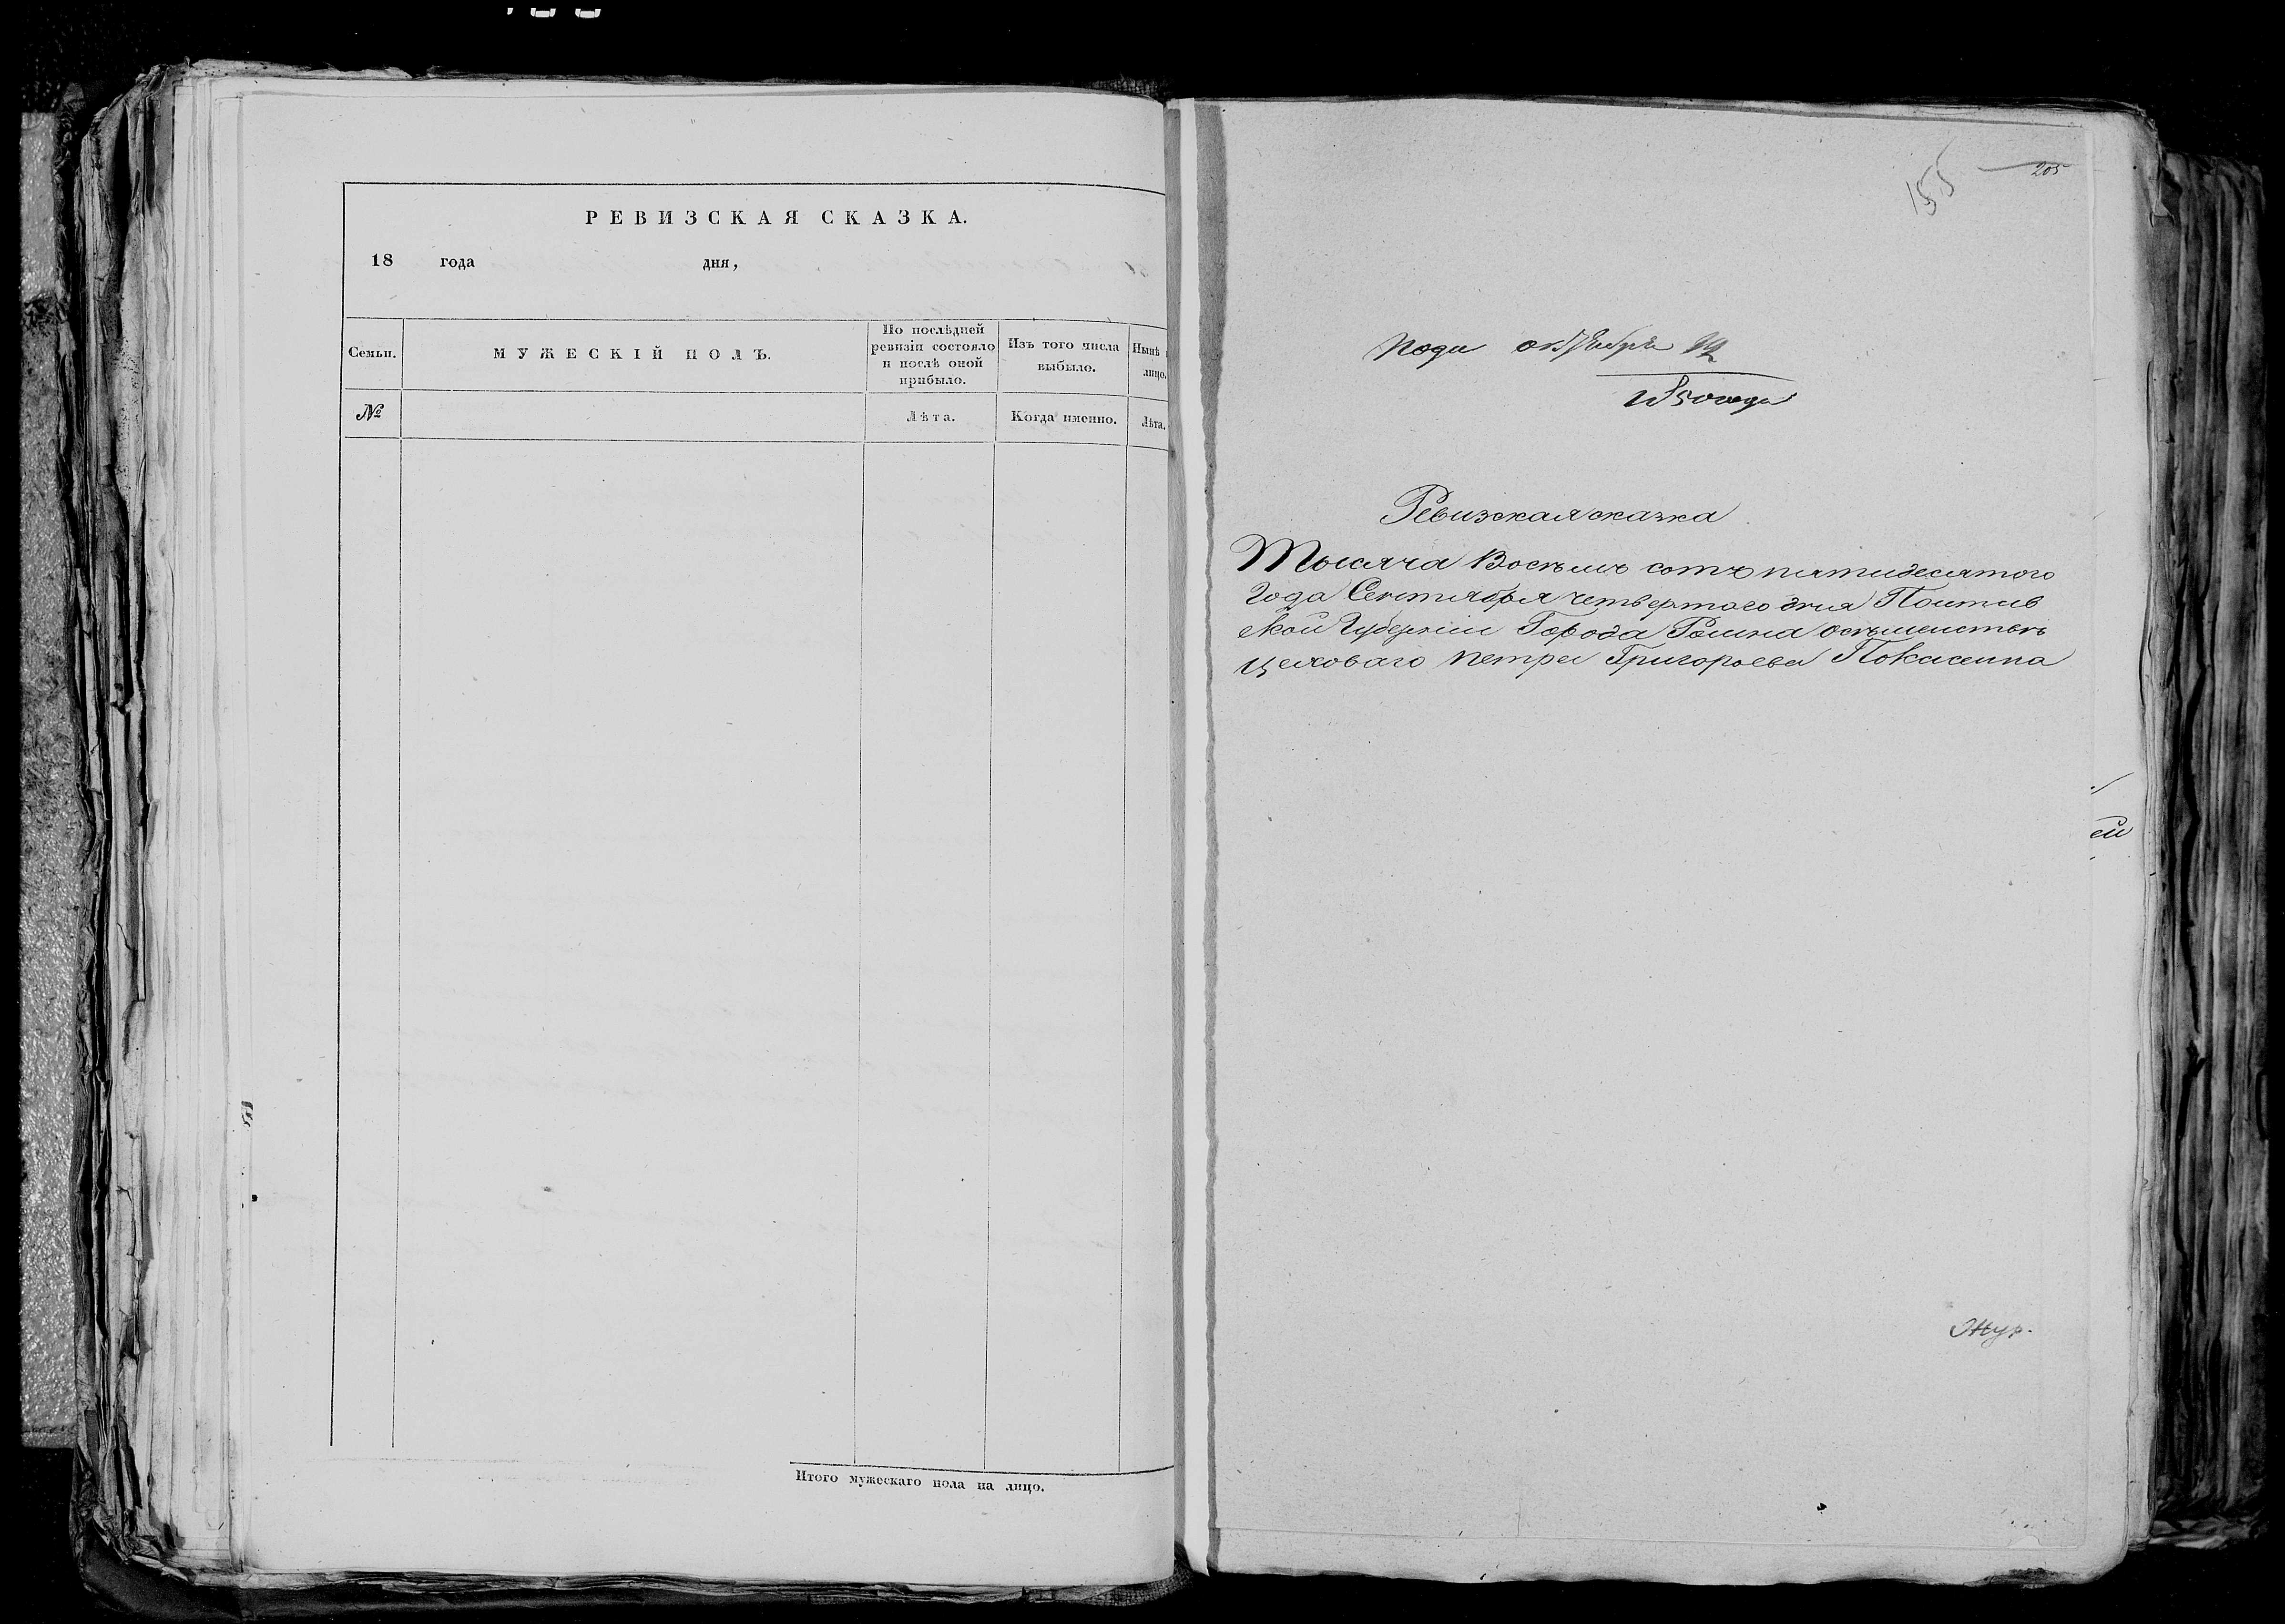 РЕВИЗСКАЯ СКАЗКА.
18 года дня,
Семьи.
МУЖЕСКІЙ ПОЛЪ.
По послѣдней
ревизіи состояло
и послѣ оной
прибыло.
Изъ того числа
выбыло.
Нынѣ
лицо.
№
Лѣта.
Когда именно.
Лѣта.
Итого мужескаго пола на лицо.
155
205
Пода октября 12
1850 года
Ревизская сказка
Тысяча Восемь сотъ пятидесятого
Года Сентября четвертого дня Полтав
ской Губерніи Города Ромна
цеховаго Петра Григорьева
ей
Жур.